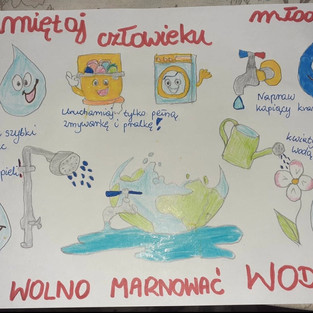 miętaj człowieku
młod
Uruchamiaj tylko pełną
zmywarkę i pralkę!
Napraw
kapiący kran
szybki
kwiat
wodą
WOLNO MARNOWAĆ WOD